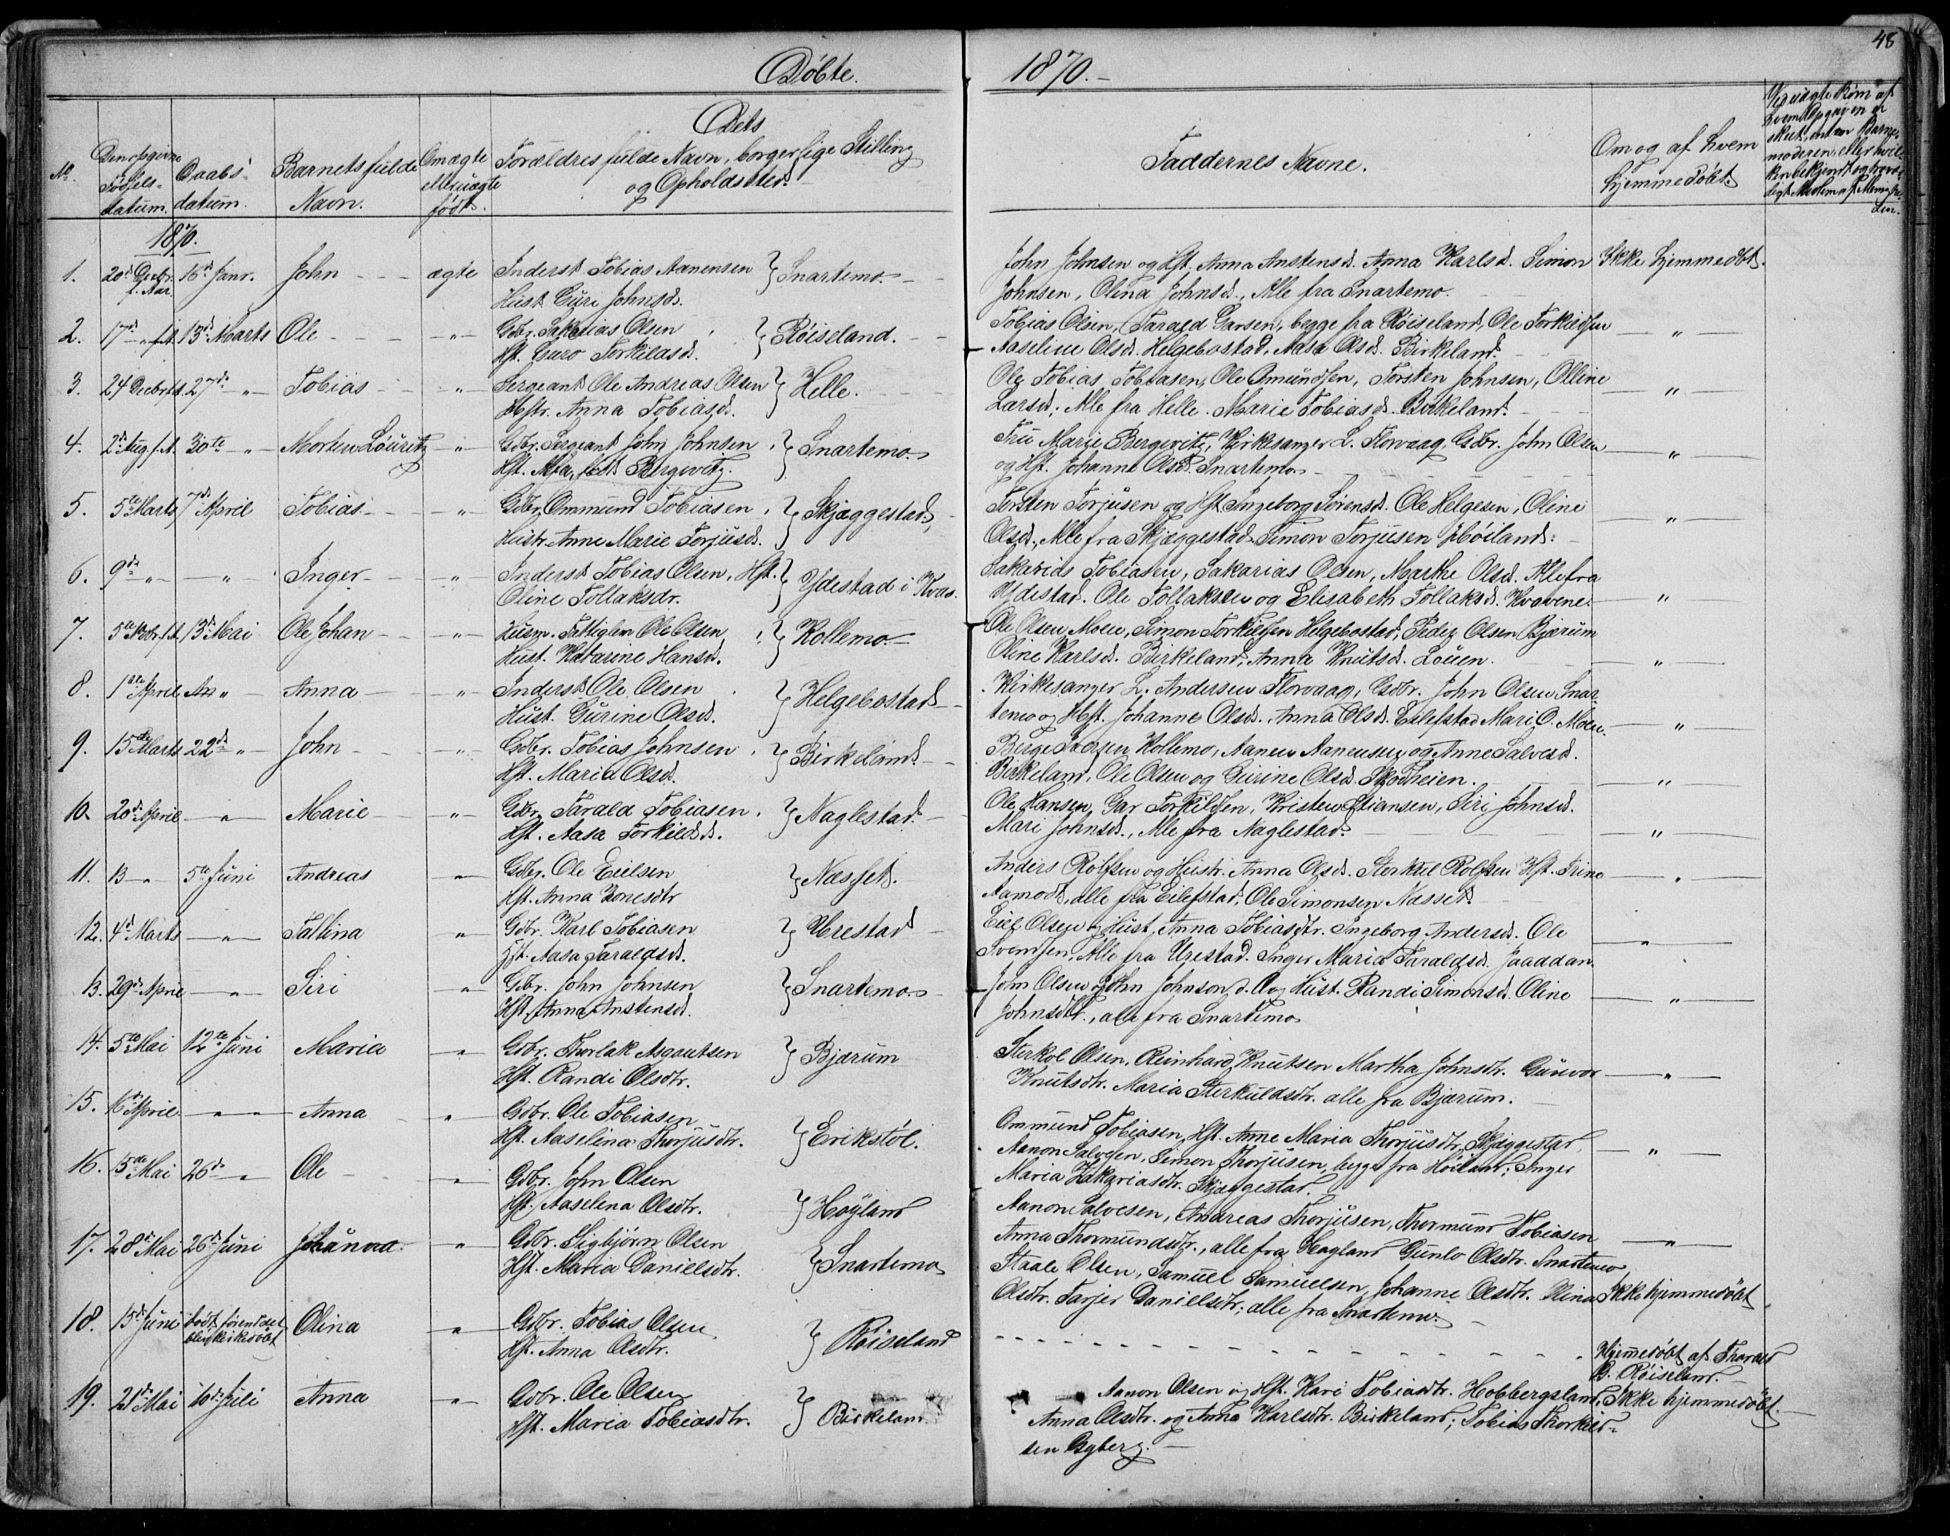 48
Døbte. 1870.-
No.
Den opgivne Fødselsdatum.
Daabsdatum.
Barnets fulde Navn.
Om ægte eller uægte født.
Dets Forældres fulde Navn, borgerlige Stilling og Opholdssted.
Faddernes Navne.
Om og af hvem hjemmedøbt.
1870.
1. 20de Decbr. f. Aar 16de Janr. John - - - ægte Inderst Tobias Aanensen } Snartemo. - John Johnsen og Hst. Anna Anstensd. Anna Karlsd. Simon Ikke hjemmedøbt.
Hust. Guri Johnsd. Johnsen, Olina Johnsd., Alle fra Snartemo.
2. 17de - f.A. 13de Marts Ole - - - - " - Gdbr. Sakarias Olsen } Røiseland. - Tobias Olsen, Tarald Garsen, begge fra Røiseland, Ole Torkildsen - " -
Hst. Guro Torkildsd. Aaseline Olsd. Helgebostad, Aasa Olsd. Birkeland.
3. 24 Decbr f.A. 27de - " - Tobias - " - Sergeant Ole Andreas Olsen } Helle. - Ole Tobias Tobiasen, Ole Omundsen, Torsten Johnsen, Olline - " -
Hstr. Anna Tobiasd. Larsd. Alle fra Helle. Marie Tobiasd. Birkeland.
4. 2de Aug. f.A. 30te - " - Morten Louritz - " - Gdbr. Sergeant John Johnsen } Snartemo. Fru Marie Bergwitz, Kirkesanger L. Florvaag, Gdbr. John Olsen - " -
Hst. født Bergwitz. og Hst. Johanne Olsd. Snartemo. -
5. 5te Marts 7de April Tobias - - " - Gdbr. Ommund Tobiasen } Skjæggestad. Torsten Torjusen og Hst. Ingeborg Sørensd. Ole Helgesen, Oline - " -
Hustr. Anne Marie Torjusd. Olsd., Alle fra Skjæggestad. Simon Torjusen Høiland.
6. 9de - " - - " - Inger - - " - Inderst Tobias Olsen, Hst. } Ydestad i Kvas. Sakarias Tobiasen, Sakarias Olsen, Marthe Olsd. Alle fra - " -
Oline Tollaksdr. Ydestad. Ole Tollaksen og Elisabeth Tollaksd. Kvavene.
7. 5te f.A. 13de Mai Ole Johan - - " - Husm. Fattiglem Ole Olsen } Kollemo. - Ole Olsen Moen, Simon Torkildsen Helgebostad, Peder Olsen Bjærum - " -
Hust. Katarine Hansd. Oline Karlsd. Birkeland, Anna Knutsd. Louen.
8. 1ste April " - Anna - - " - Inderst Ole Olsen } Helgebostad - Kirkesanger L. Andersen Florvaag, Gdbr. John Olsen Snar-
Hust. Gurine Olsd. temo og Hst. Johanne Olsd. Anna Olsd. Eilefstad Mari O. Moen. - " -
9. 15de Marts 22de - " - John - - " - Gdbr. Tobias Johnsen } Birkeland - Berge Kollemo, Aanen Aanensen og Anne Salvesd.
Hst. Maria Olsd. Birkeland, Ole Olsen og Gurine Olsd. - " -
10. 20de April - " - Marie - - " - Gdbr. Tarald Tobiasen } Naglestad. - Ole Hansen, Gar Torkildsen, Kristen Stiansen, Siri Johnsd.
Hst. Aasa Torkildsd. Mari Johnsd., Alle fra Naglestad. - " -
11. 13 - " - 5te Juni Andreas - " - Gdbr. Ole Eielsen } Næsset. Anders Rolfsen og Hustr. Anna Olsd. Storkul Rolfsen Hst. Trine - " -
Hst. Anna Aamodt, alle fra Eilefstad, Ole Simonsen Næsset.
12. 4de Marts - " - Tallina " Gdbr. Karl Tobiasen } Urestad - Eiel Olsen og Hust. Anna Tobiasdtr. Ingeborg Andersd. Ole - " -
Hst. Aasa Taraldsd. Svendsen, Alle fra Urestad. Inger Maria Taraldsd. Jaaddan.
13. 29de April - " - Siri - " - Gdbr. John Johnsen } Snartemo. John Olsen, John Johnson d. og Hust. Randi Simonsd. Oline - " -
Hst. Anna Anstensd. Johnsdtr., alle fra Snartemo.
14. 5te Mai 12te Juni Maria - " - Gdbr. Thorlak Asgautsen } Bjærum Sterkol Olsen, Reinhard Knutsen Martha Johnsdtr. Gunvor - " -
Hst. Randi Olsdtr. Knutsdtr. Maria Sterkuldsdtr. alle fra Bjærum.
15. 16de April - " - Anna - " - Gdbr. Ole Tobiasen } Erikstøl. Ommund Tobiasen, Hst. Anne Maria Thorjusdtr. Skjæggestad,
Hst. Aaselina Thorjusdtr. Aanon Salvesen, Simon Thorjusen, begge fra Høiland; Inger - " -
Maria Zakariasdtr. Skjæggestad.
16. 15de Mai 26de - " - Ole - - " - Gdbr. John Olsen } Høyland Aanon Salvesen, Andreas Thorjusen, Thormund Tobiasen
Hst. Aaselena Olsdtr. Anna Thormundsdtr., alle fra Gunlo Olsdtr. Snartemo. - " -
17. 28de Mai 26de Juni Johanna. " Gdbr. Sigbjørn Olsen } Snartemo Staale Olsen, Samuel Samuelsen, Johanne Olsdtr. Olina Ikke hjemmedøbt
Hst. Maria Danielsdtr. Olsdtr. Tarjer Danielsdtr. alle fra Snartemo.
18. 15de Juni Olina - " - Gdbr. Tobias Olsen } Røiseland - - - - - - Hjemmedøbt af
Hst. Anna Olsdtr. Røiseland.
19. 21de Mai 10de Juli Anna - " - Gdbr. Ole Olsen } Birkeland Aanon Olsen og Hst. Kari Tobiasdtr. Hobbergsland, Ikke hjemmedøbt.
Hst. Maria Tobiasdtr. Anna Olsdtr. og Anna Karlsdtr. Birkeland; Tobias Thorkild-
sen Byberg. -